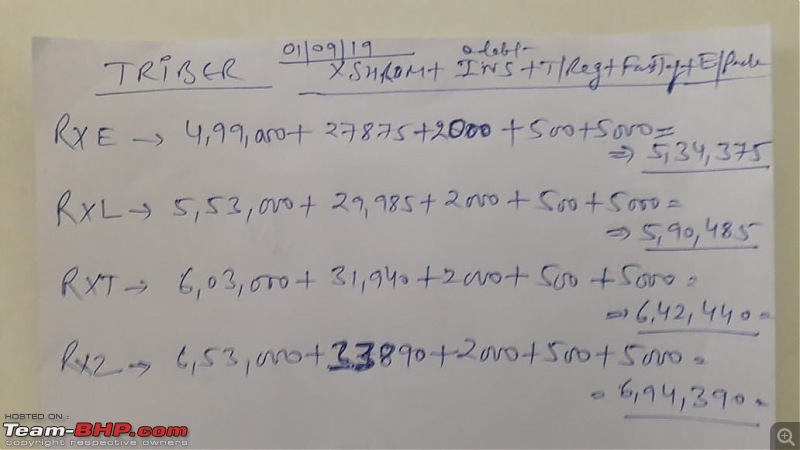 01/09/19
TRIBER X.SHROM+ 0 debt- INS+T/Reg+FasTag+E/Pack
RXE → 4,99,000+ 27875+2000 +500+5000=
⇒ 5,34,375
RXL → 5,53,000+ 29,985+ 2000 + 500+ 5000=
⇒ 5,90,485
RXT → 6,03,000+ 31,940+2000+ 500 +5000=
⇒ 6,42,440=
RXZ → 6,53,000+33890+2000+500+5000=
= 6,94,390=
HOSTED ON :
Team-BHP.com
copyright respective owners